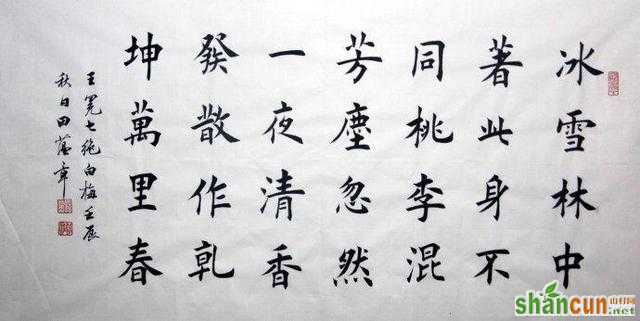 冰雪林中
著此身不
同桃李混
芳塵忽然
一夜清香
發散作乾
坤萬里春
王冕七絶白梅壬辰
秋日田蘊章
shancun
山村网
.net